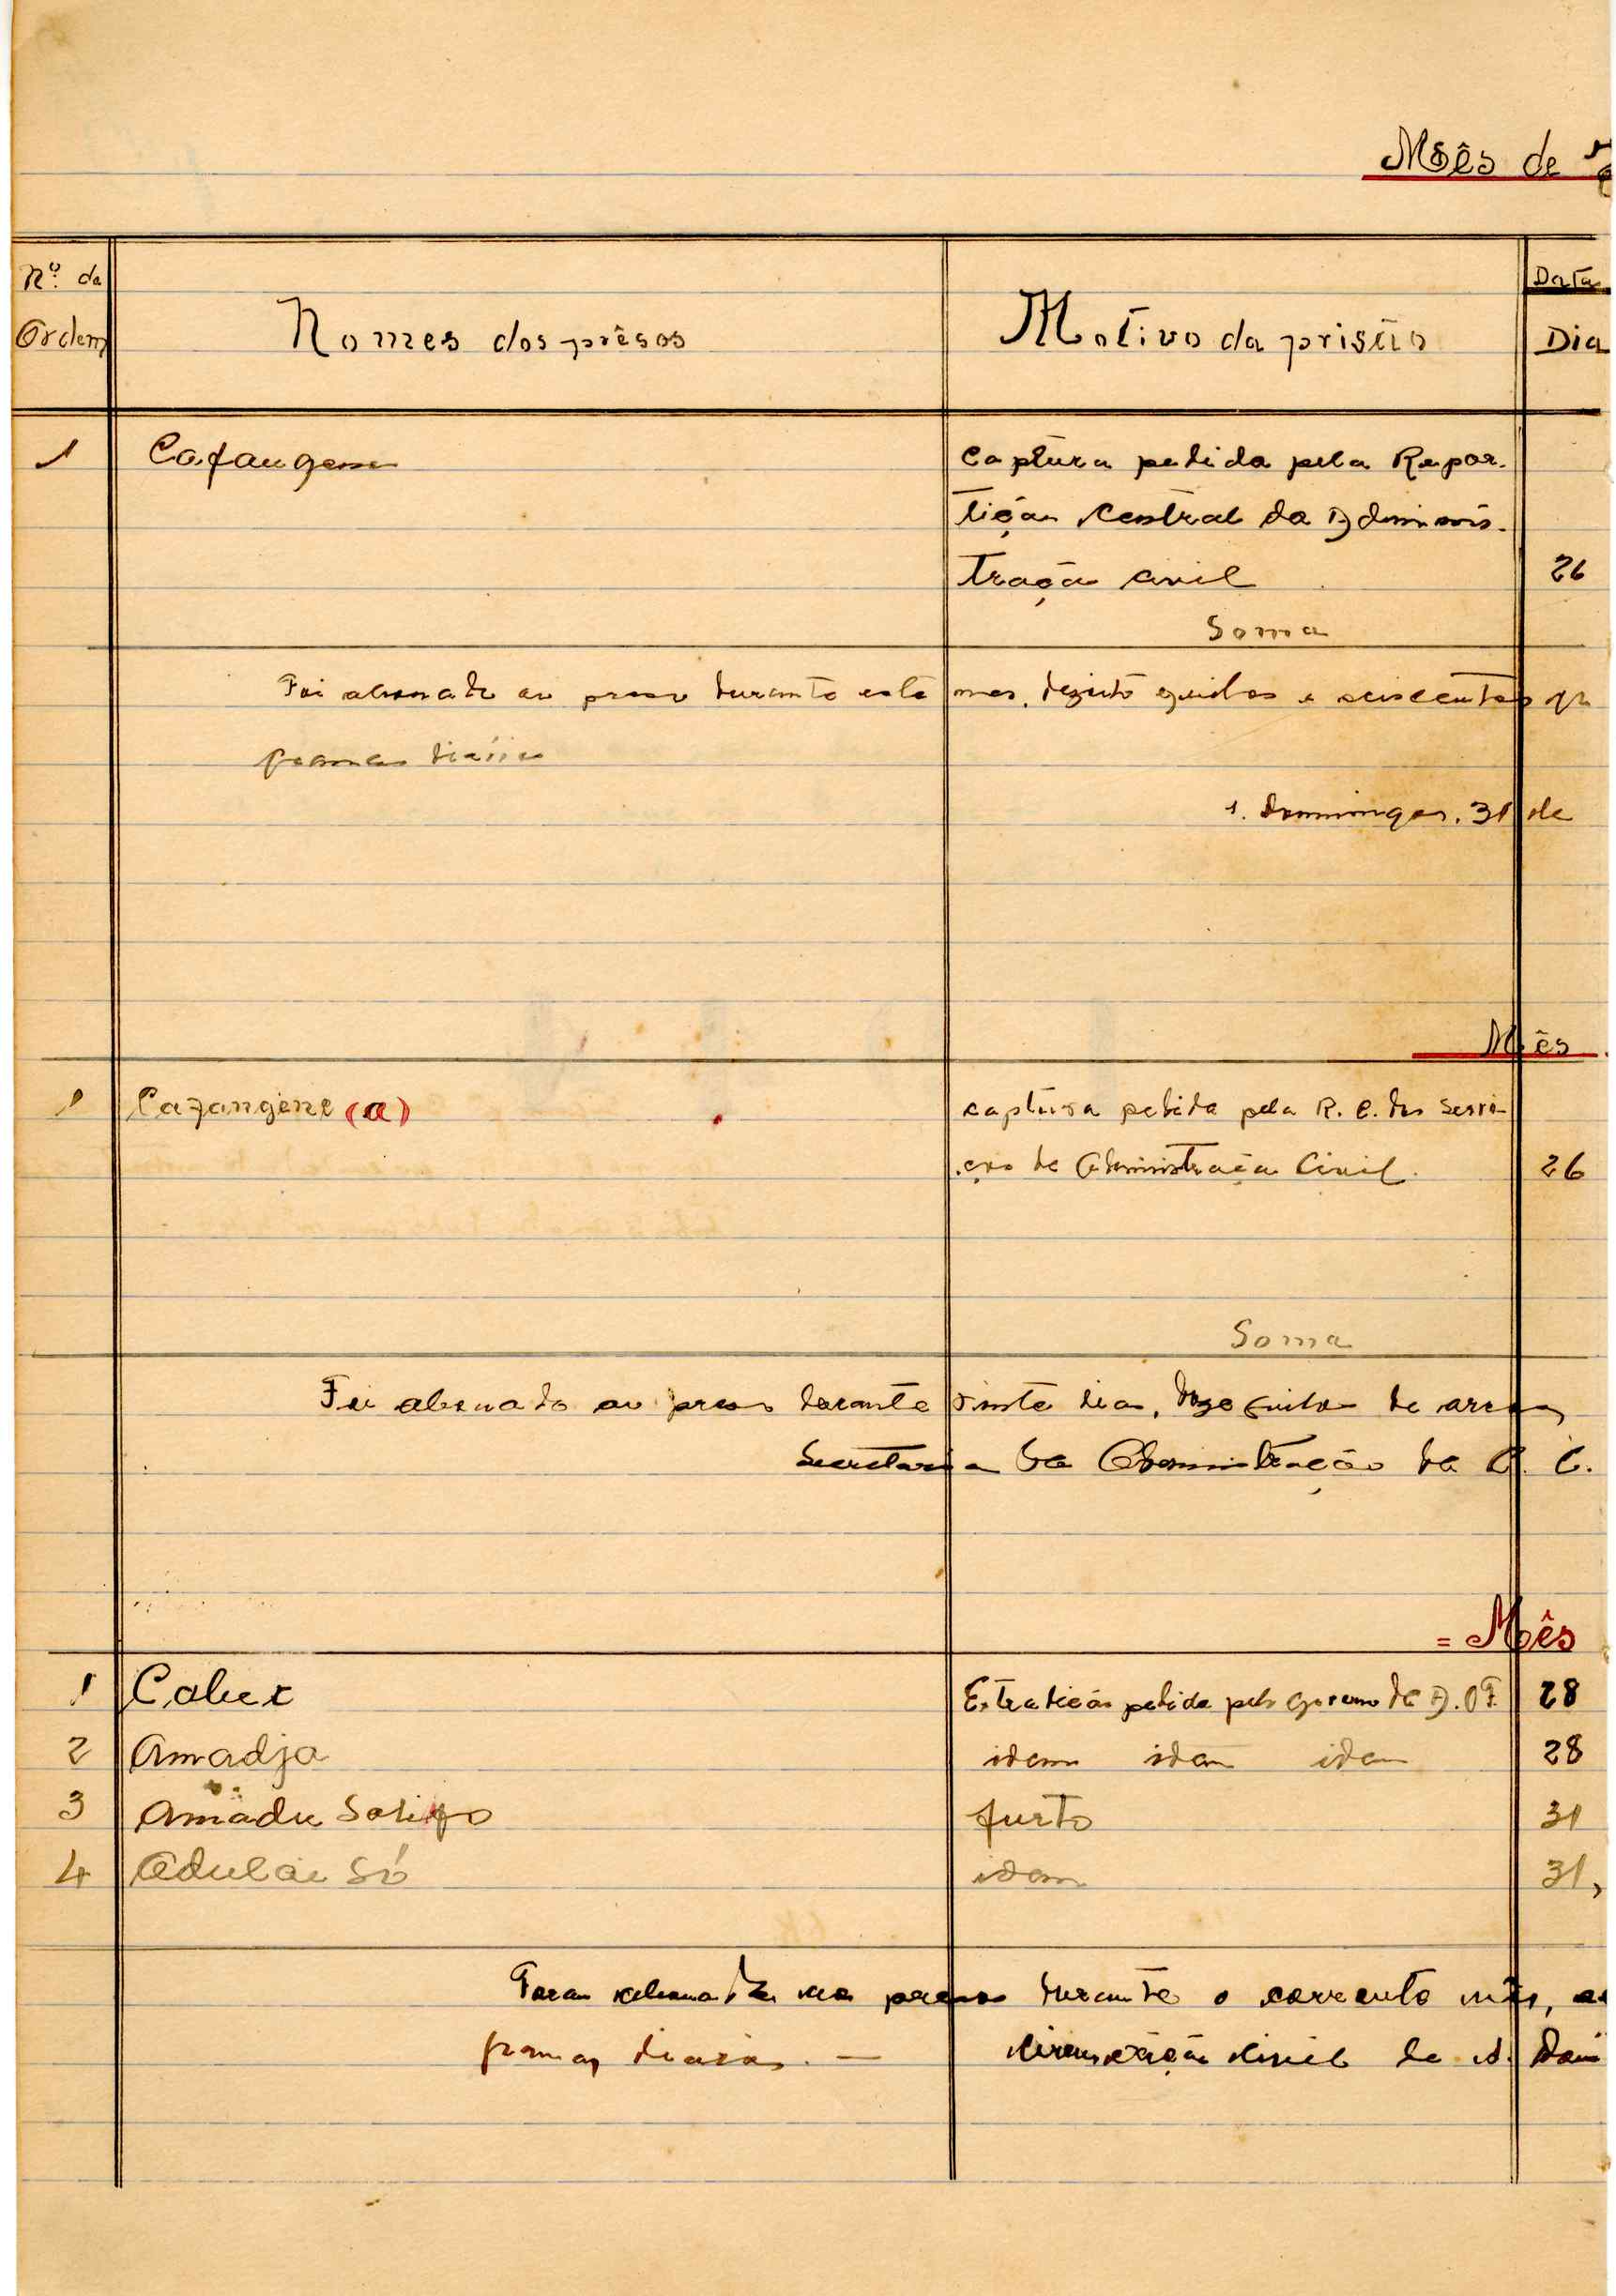 Mês de
Nº de
Ordem
Nomes dos prêsos
Motivo da prisão
Data
Dia
1 Cafangene Captura pedida pela Repar-
tição Central da Adminis-
tração Civil 26
Soma
Foi abonado ao preso durante este mes, dezoito quilos e seiscentos
gramas diários
S. Domingos, 31 de
Mês
1 Cafangene (a) captura pedida pela R. C. dos Servi-
ços de Administração Civil. 26
Soma
Foi abonado ao preso durante vinte dias, doze quilos de arroz,
Secretaria da Administração da C. C.
= Mês
1 Extradição pedida pelo Governo da A. O F. 28
2 Amadja idem idem idem 28
3 Amadu furto 31
4 Adulai Só idem 31,
Foram abonados aos presos durante o corrente mês,
gramas diarias. — Circunscrição Civil de S. Domi